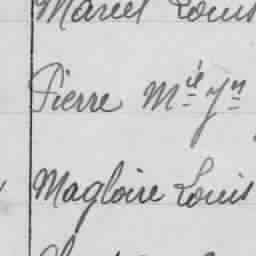 Marcel Louis
Pierre Mie Jn
Magloire Louis